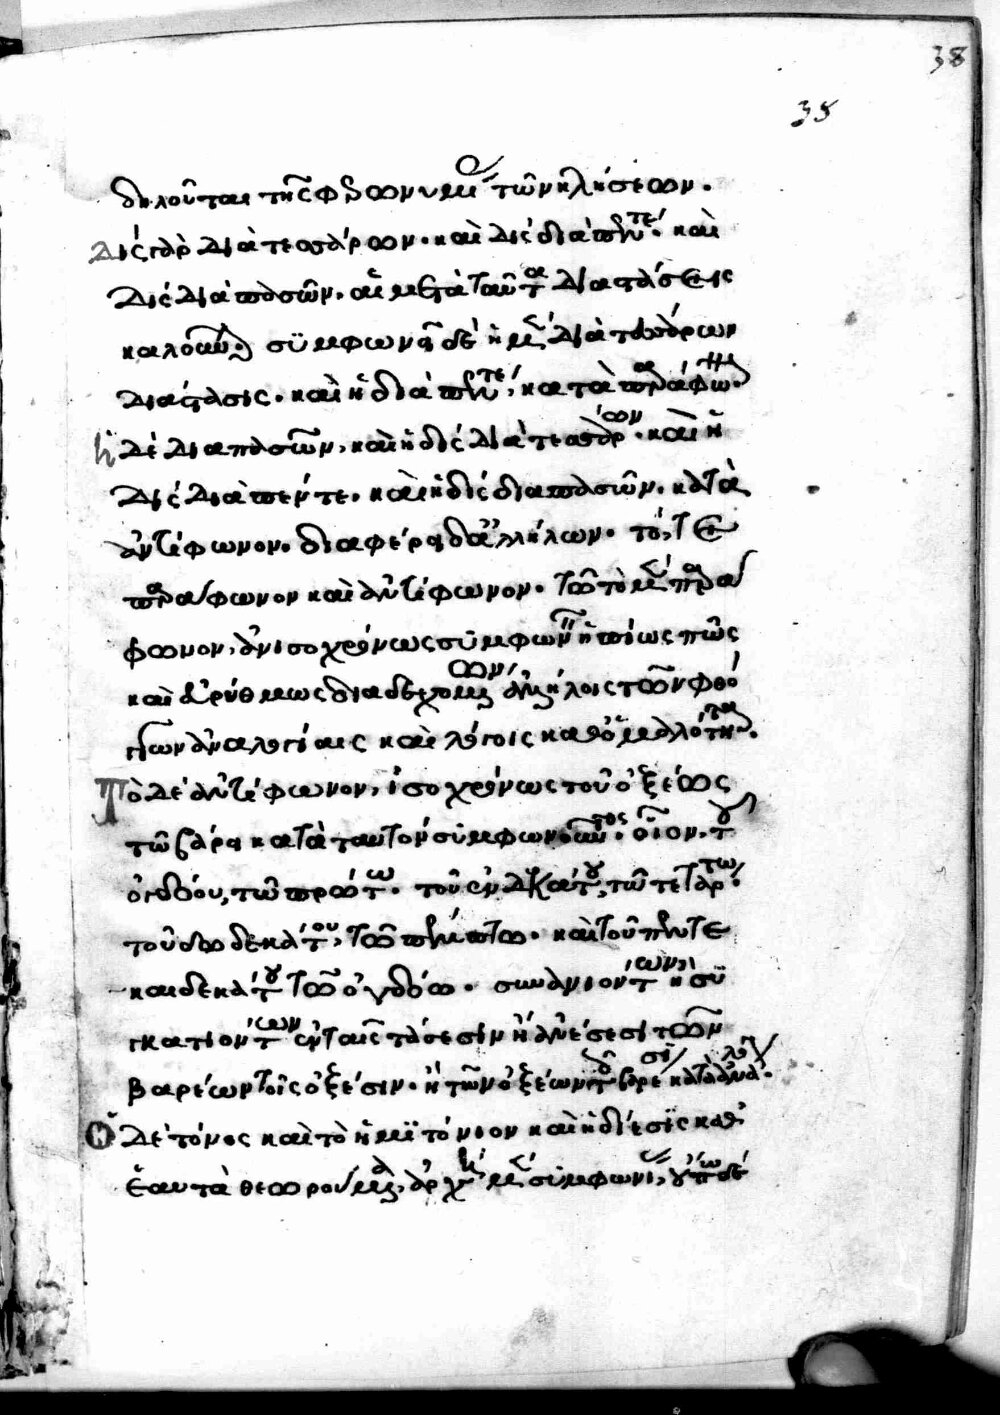 38
35
δηλοῦται τῆς φθ τῶν κλήσεων.
Δὶς γὰρ διὰ τεσσάρων. καὶ δὶς διὰ πέντε. καὶ
δὶς διὰ πασῶν. αἱ μετὰ ταῦτα διατάσεις
καλοῦνται σύμφωνα δὲ ἡ μὲν διὰ τεσσάρων
διάστασις. καὶ ἡ διὰ πέντε, κατὰ παράφωνον.
ἡ δὲ διαπασῶν, καὶ ἡ δὶς διὰ τεσσάρων. καὶ ἡ
δὶς διὰ πέντε. καὶ ἡ δὶς διαπασῶν. κατὰ
ἀντίφωνον. διαφέρει δ' ἀλλήλων. τό, τε
παράφωνον καὶ ἀντίφωνον. τῶ τὸ μὲν παρά
φωνον, ἀνισοχρόνως σύμφωνον ἡπίως πῶς
καὶ εὐρύθμως διαδεχομένων ἀλλήλοις τῶν φθό
γγων ἀναλογίαις καὶ λόγοις καθ' ὁμαλότητα.
Τὸ δὲ ἀντίφωνον, ἰσοχρόνως τοῦ ὀξέως
τῶ βάρει κατὰ ταυτὸν συμφωνοῦντος. οἷον, τοῦ
ὀγδόου, τῶ πρώτω. τοῦ ἑνδεκάτου, τῶ τετάρτω.
τοῦ δωδεκάτου, τῶ πέμπτω. καὶ τοῦ πεντε
καιδεκάτου τῶ ὀγδόω. συνανιόντων ἢ συ
γκατιόντων ἐν ταῖς τάσεσιν ἢ ἀνέσεσι τῶν
βαρέων τοῖς ὀξέσιν. ἢ τῶν ὀξέων τοῖς βαρέσι κατὰ ἀνάλο.
Ὁ δὲ τόνος καὶ τὸ ἡμιτόνιον καὶ ἡ δίεσις καθ'
ἑαυτὰ θεωρούμενα, ἀρχὴ μὲν συμφωνι, οὔπω δέ